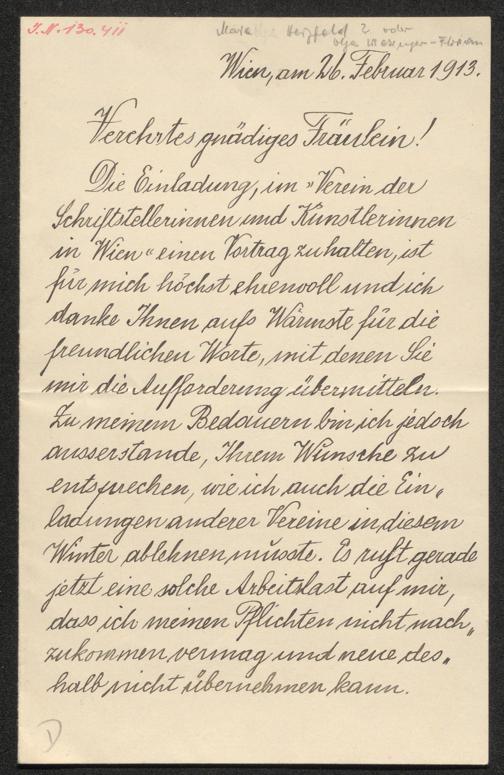 J.N. 130.411
Marianne Herzfeld? oder
Olga Wisinger-Florian
Wien, am 26. Februar 1913.
Verehrtes gnädiges Fräulein!
Die Einladung, im "Verein der
Schriftstellerinnen und Künstlerinnen
in Wien" einen Vortrag zu halten, ist
für mich höchst ehrenvoll und ich
danke Ihnen aufs Wärmste für die
freundlichen Worte, mit denen Sie
mir die Aufforderung übermitteln.
Zu meinem Bedauern bin ich jedoch
ausserstande, Ihrem Wunsche zu
entsprechen, wie ich auch die Ein„
ladungen anderer Vereine in diesem
Winter ablehnen musste. Es ruht gerade
jetzt eine solche Arbeitslast auf mir,
dass ich meinen Pflichten nicht nach„
zukommen vermag und neue des„
halb nicht übernehmen kann.